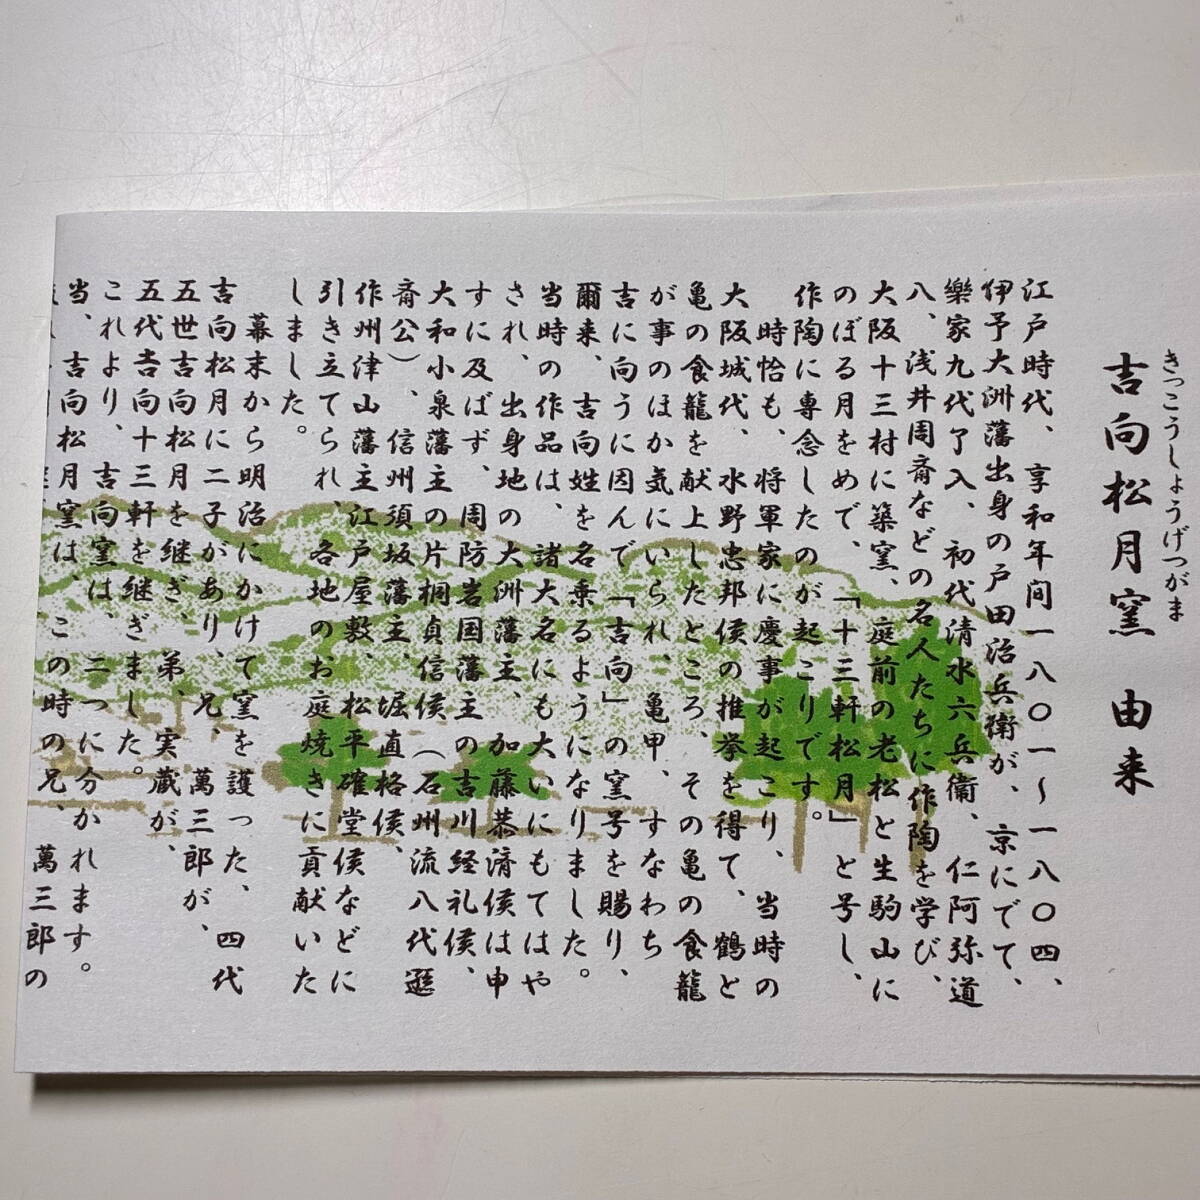 きっこうしょうげつがま
吉向松月窯 由来
江戸時代、享和年間一八〇一～一八〇四、
伊予大洲藩出身の戸田治兵衛が、京にでて、
樂家九代了入、初代清水六兵衞、仁阿弥道
八、浅井周斎などの名人たちに作陶を学び、
大阪十三村に築窯、庭前の老松と生駒山に
のぼる月をめで、「十三軒松月」と号し、
作陶に専念したのが起こりです。
時恰も、将軍家に慶事が起こり、当時の
大阪城代、水野忠邦侯の推挙を得て、鶴と
亀の食籠を献上したところ、その亀の食籠
が事のほか気にいられ、亀甲、すなわち
吉に向うに因んで「吉向」の窯号を賜り、
爾来、吉向姓を名乗るようになりました。
当時の作品は、諸大名にも大いにもてはや
され、出身地の大洲藩主、加藤泰済侯は申
すに及ばず、周防岩国藩主の吉川経礼侯、
大和小泉藩主の片桐貞信侯（石州流八代遜
斎公）、信州須坂藩主、堀直格侯、
作州津山藩主江戸屋敷、松平確堂侯などに
引き立てられ、各地のお庭焼きに貢献いた
しました。
幕末から明治にかけて窯を護った、四代
吉向松月に二子があり、兄、萬三郎が、
五世吉向松月を継ぎ、弟、実蔵が、
五代吉向十三軒を継ぎました。
これより、吉向窯は、二つに分かれます。
当、吉向松月窯は、この時の兄、萬三郎の